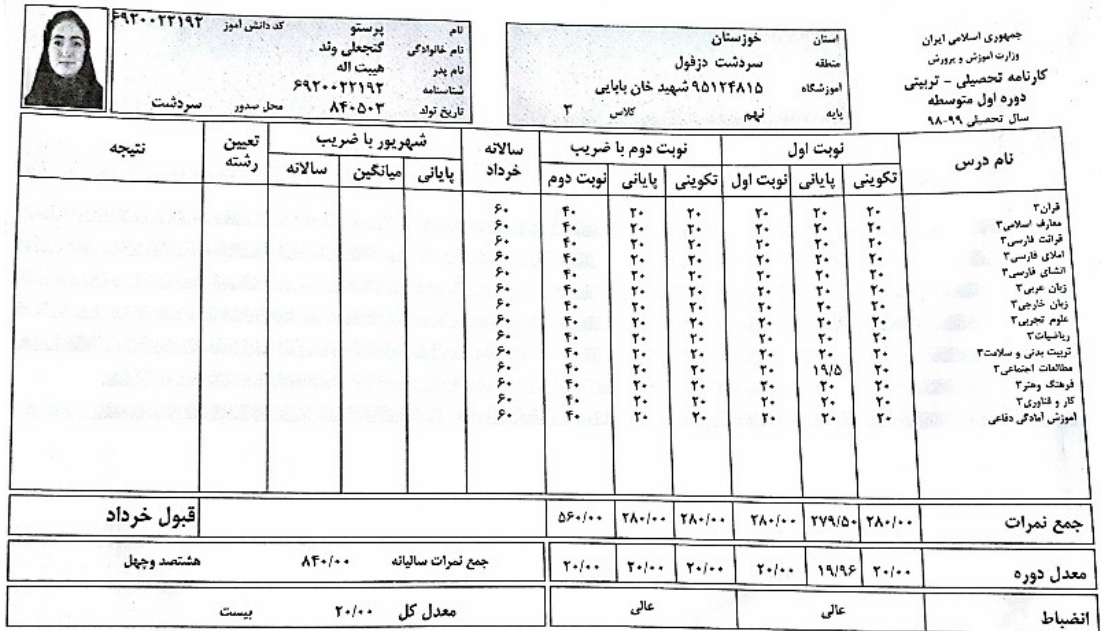 جمهوری اسلامی ایران
وزارت اموزش و پرورش
کارنامه تحصیلی - تربیتی
دوره اول متوسطه
سال تحصیلی ۹۹-۹۸
استان خوزستان
منطقه سردشت دزفول
اموزشگاه ۹۵۱۲۴۸۱۵ شهید خان بابایی
پایه نهم کلاس ۳
نام پرستو کد دانش اموز ۶۹۲۰۰۲۲۱۹۲
نام خانوادگی گنجعلی وند
نام پدر هیبت اله
شناسنامه ۶۹۲۰۰۲۲۱۹۲
تاریخ تولد ۸۴۰۵۰۳ محل صدور سردشت
نام درس نوبت اول نوبت دوم با ضریب سالانه خرداد شهریور با ضریب تعیین رشته نتیجه
تکوینی پایانی نوبت اول تکوینی پایانی نوبت دوم پایانی میانگین سالانه
قران۳ ۲۰ ۲۰ ۲۰ ۲۰ ۲۰ ۴۰ ۶۰
معارف اسلامی۳ ۲۰ ۲۰ ۲۰ ۲۰ ۲۰ ۴۰ ۶۰
قرائت فارسی۳ ۲۰ ۲۰ ۲۰ ۲۰ ۲۰ ۴۰ ۶۰
املای فارسی۳ ۲۰ ۲۰ ۲۰ ۲۰ ۲۰ ۴۰ ۶۰
انشای فارسی۳ ۲۰ ۲۰ ۲۰ ۲۰ ۲۰ ۴۰ ۶۰
زبان عربی۳ ۲۰ ۲۰ ۲۰ ۲۰ ۲۰ ۴۰ ۶۰
زبان خارجی۳ ۲۰ ۲۰ ۲۰ ۲۰ ۲۰ ۴۰ ۶۰
علوم تجربی۳ ۲۰ ۲۰ ۲۰ ۲۰ ۲۰ ۴۰ ۶۰
ریاضیات۳ ۲۰ ۲۰ ۲۰ ۲۰ ۲۰ ۴۰ ۶۰
تربیت بدنی و سلامت۳ ۲۰ ۲۰ ۲۰ ۲۰ ۲۰ ۴۰ ۶۰
مطالعات اجتماعی۳ ۲۰ ۱۹/۵ ۲۰ ۲۰ ۲۰ ۴۰ ۶۰
فرهنگ وهنر۳ ۲۰ ۲۰ ۲۰ ۲۰ ۲۰ ۴۰ ۶۰
کار و فناوری۳ ۲۰ ۲۰ ۲۰ ۲۰ ۲۰ ۴۰ ۶۰
اموزش آمادگی دفاعی ۲۰ ۲۰ ۲۰ ۲۰ ۲۰ ۴۰ ۶۰
جمع نمرات ۲۸۰/۰۰ ۲۷۹/۵۰ ۲۸۰/۰۰ ۲۸۰/۰۰ ۲۸۰/۰۰ ۵۶۰/۰۰ قبول خرداد
معدل دوره ۲۰/۰۰ ۱۹/۹۶ ۲۰/۰۰ ۲۰/۰۰ ۲۰/۰۰ ۲۰/۰۰ جمع نمرات سالیانه ۸۴۰/۰۰ هشتصد وچهل
انضباط عالی عالی معدل کل ۲۰/۰۰ بیست